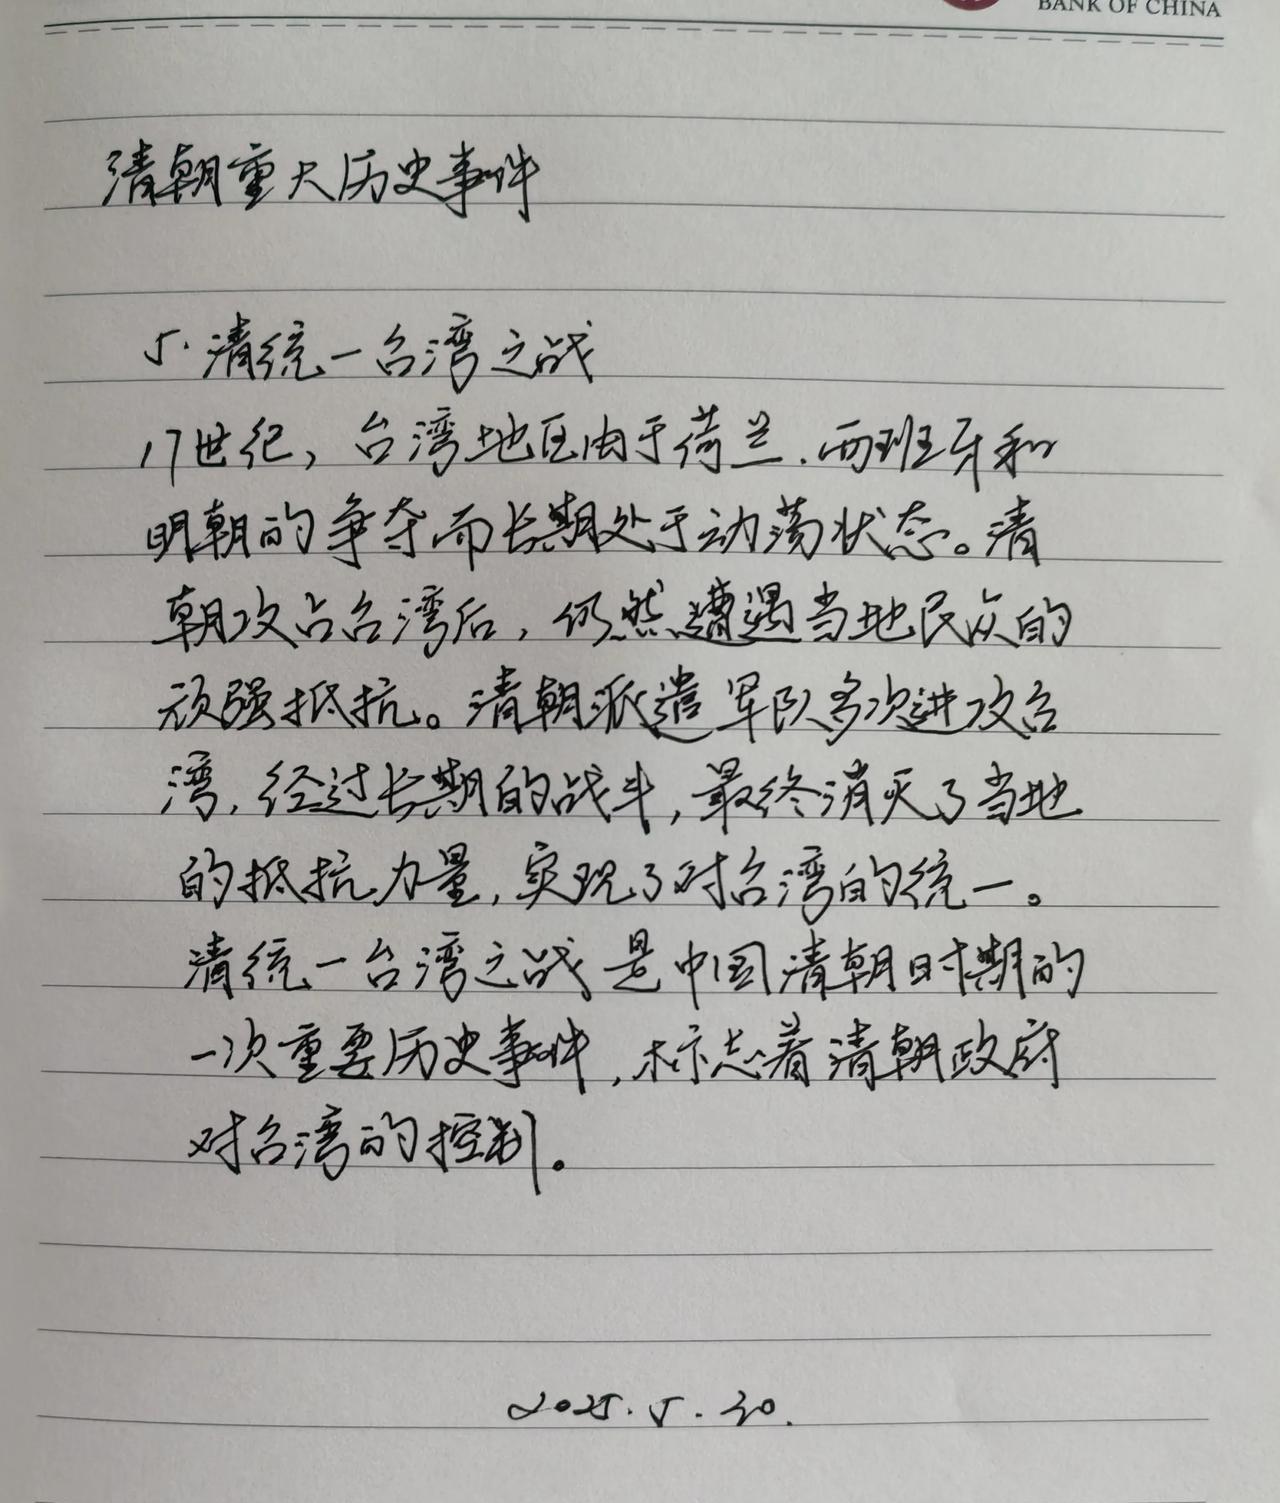 BANK OF CHINA
清朝重大历史事件
5.清统一台湾之战
17世纪，台湾地区由于荷兰.西班牙和
明朝的争夺而长期处于动荡状态。清
朝攻占台湾后，仍然遭遇当地民众的
顽强抵抗。清朝派遣军队多次进攻台
湾，经过长期的战斗，最终消灭了当地
的抵抗力量，实现了对台湾的统一。
清统一台湾之战是中国清朝时期的
一次重要历史事件，标志着清朝政府
对台湾的控制。
2025.5.30.